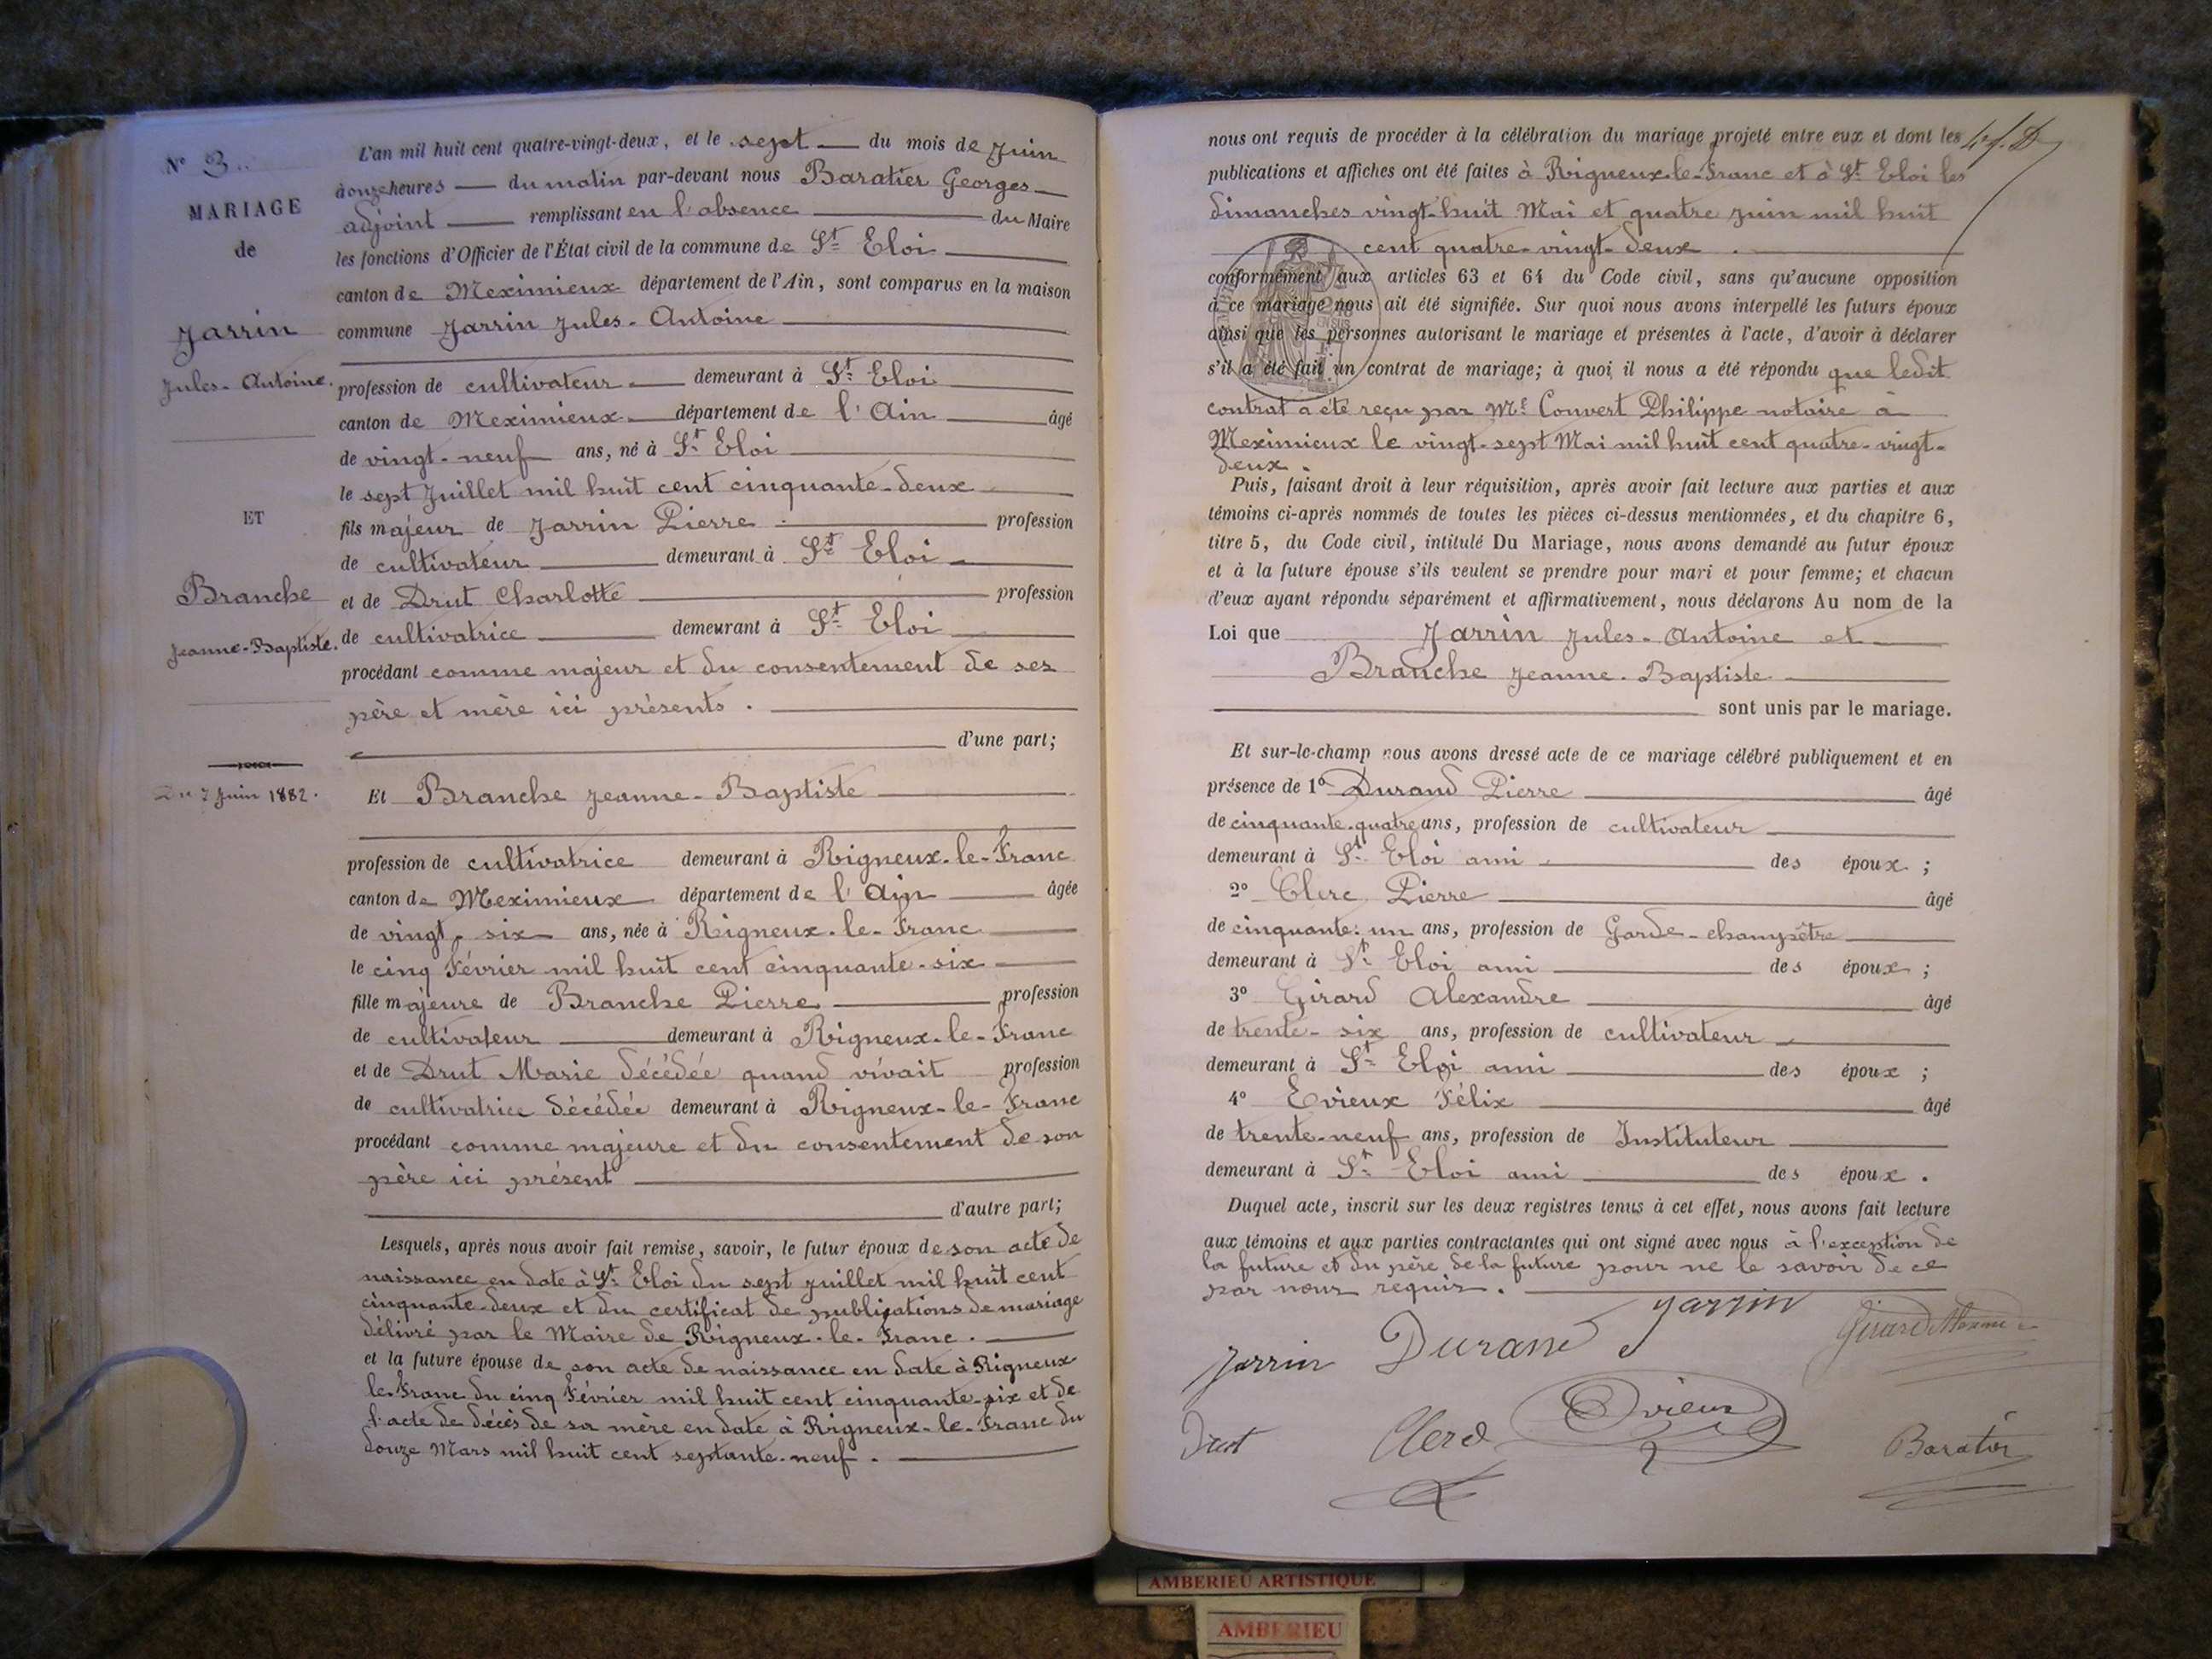 N° 3.
MARIAGE
de
Jarrin
Jules-Antoine.
ET
Branche
Jeanne-Baptiste.
Du 7 Juin 1882.
L'an mil huit cent quatre-vingt-deux, et le sept du mois de Juin
à onze heures du matin par-devant nous Baratier Georges
adjoint remplissant en l'absence du Maire
les fonctions d'Officier de l'État civil de la commune de St Eloi
canton de Meximieux département de l'Ain, sont comparus en la maison
commune Jarrin Jules-Antoine
profession de cultivateur demeurant à St Eloi
canton de Meximieux département de l'Ain âgé
de vingt-neuf ans, né à St Eloi
le sept Juillet mil huit cent cinquante-deux
fils majeur de Jarrin Pierre profession
de cultivateur demeurant à St Eloi
et de Drut Charlotte profession
de cultivatrice demeurant à St Eloi
procédant comme majeur et du consentement de ses
père et mère ici présents.
d'une part;
Et Branche Jeanne-Baptiste
profession de cultivatrice demeurant à Rigneux-le-Franc
canton de Meximieux département de l'Ain âgée
de vingt-six ans, née à Rigneux-le-Franc
le cinq Février mil huit cent cinquante-six
fille majeure de Branche Pierre profession
de cultivateur demeurant à Rigneux-le-Franc
et de Drut Marie décédée quand vivait profession
de cultivatrice décédée demeurant à Rigneux-le-Franc
procédant comme majeure et du consentement de son
père ici présent
d'autre part;
Lesquels, après nous avoir fait remise, savoir, le futur époux de son acte de
naissance en date à St Eloi du sept Juillet mil huit cent
cinquante-deux et du certificat de publications de mariage
délivré par le Maire de Rigneux-le-Franc.
et la future épouse de son acte de naissance en date à Rigneux
le-Franc du cinq Février mil huit cent cinquante-six et de
l'acte de décès de sa mère en date à Rigneux-le-Franc du
douze Mars mil huit cent septante-neuf.
nous ont requis de procéder à la célébration du mariage projeté entre eux et dont les
publications et affiches ont été faites à Rigneux-le-Franc et à St Eloi les
dimanches vingt-huit Mai et quatre Juin mil huit
cent quatre-vingt-deux.
conformément aux articles 63 et 64 du Code civil, sans qu'aucune opposition
à ce mariage nous ait été signifiée. Sur quoi nous avons interpellé les futurs époux
ainsi que les personnes autorisant le mariage et présentes à l'acte, d'avoir à déclarer
s'il a été fait un contrat de mariage; à quoi il nous a été répondu que ledit
contrat a été reçu par Me Convert Philippe notaire à
Meximieux le vingt-sept Mai mil huit cent quatre-vingt-
deux.
Puis, faisant droit à leur réquisition, après avoir fait lecture aux parties et aux
témoins ci-après nommés de toutes les pièces ci-dessus mentionnées, et du chapitre 6,
titre 5, du Code civil, intitulé Du Mariage, nous avons demandé au futur époux
et à la future épouse s'ils veulent se prendre pour mari et pour femme; et chacun
d'eux ayant répondu séparément et affirmativement, nous déclarons Au nom de la
Loi que Jarrin Jules-Antoine et
Branche Jeanne-Baptiste
sont unis par le mariage.
Et sur-le-champ nous avons dressé acte de ce mariage célébré publiquement et en
présence de 1° Durand Pierre âgé
de cinquante-quatre ans, profession de cultivateur
demeurant à St Eloi ami des époux;
2° Clerc Pierre âgé
de cinquante-un ans, profession de Garde-champêtre
demeurant à St Eloi ami des époux;
3° Girard Alexandre âgé
de trente-six ans, profession de cultivateur
demeurant à St Eloi ami des époux;
4° Evieux Félix âgé
de trente-neuf ans, profession de Instituteur
demeurant à St Eloi ami des époux.
Duquel acte, inscrit sur les deux registres tenus à cet effet, nous avons fait lecture
aux témoins et aux parties contractantes qui ont signé avec nous à l'exception de
la future et du père de la future pour ne le savoir de ce
par nous requis.
Jarrin Durand Jarrin Girard
Drut Clerc Evieux Baratier
AMBERIEU ARTISTIQUE
AMBERIEU